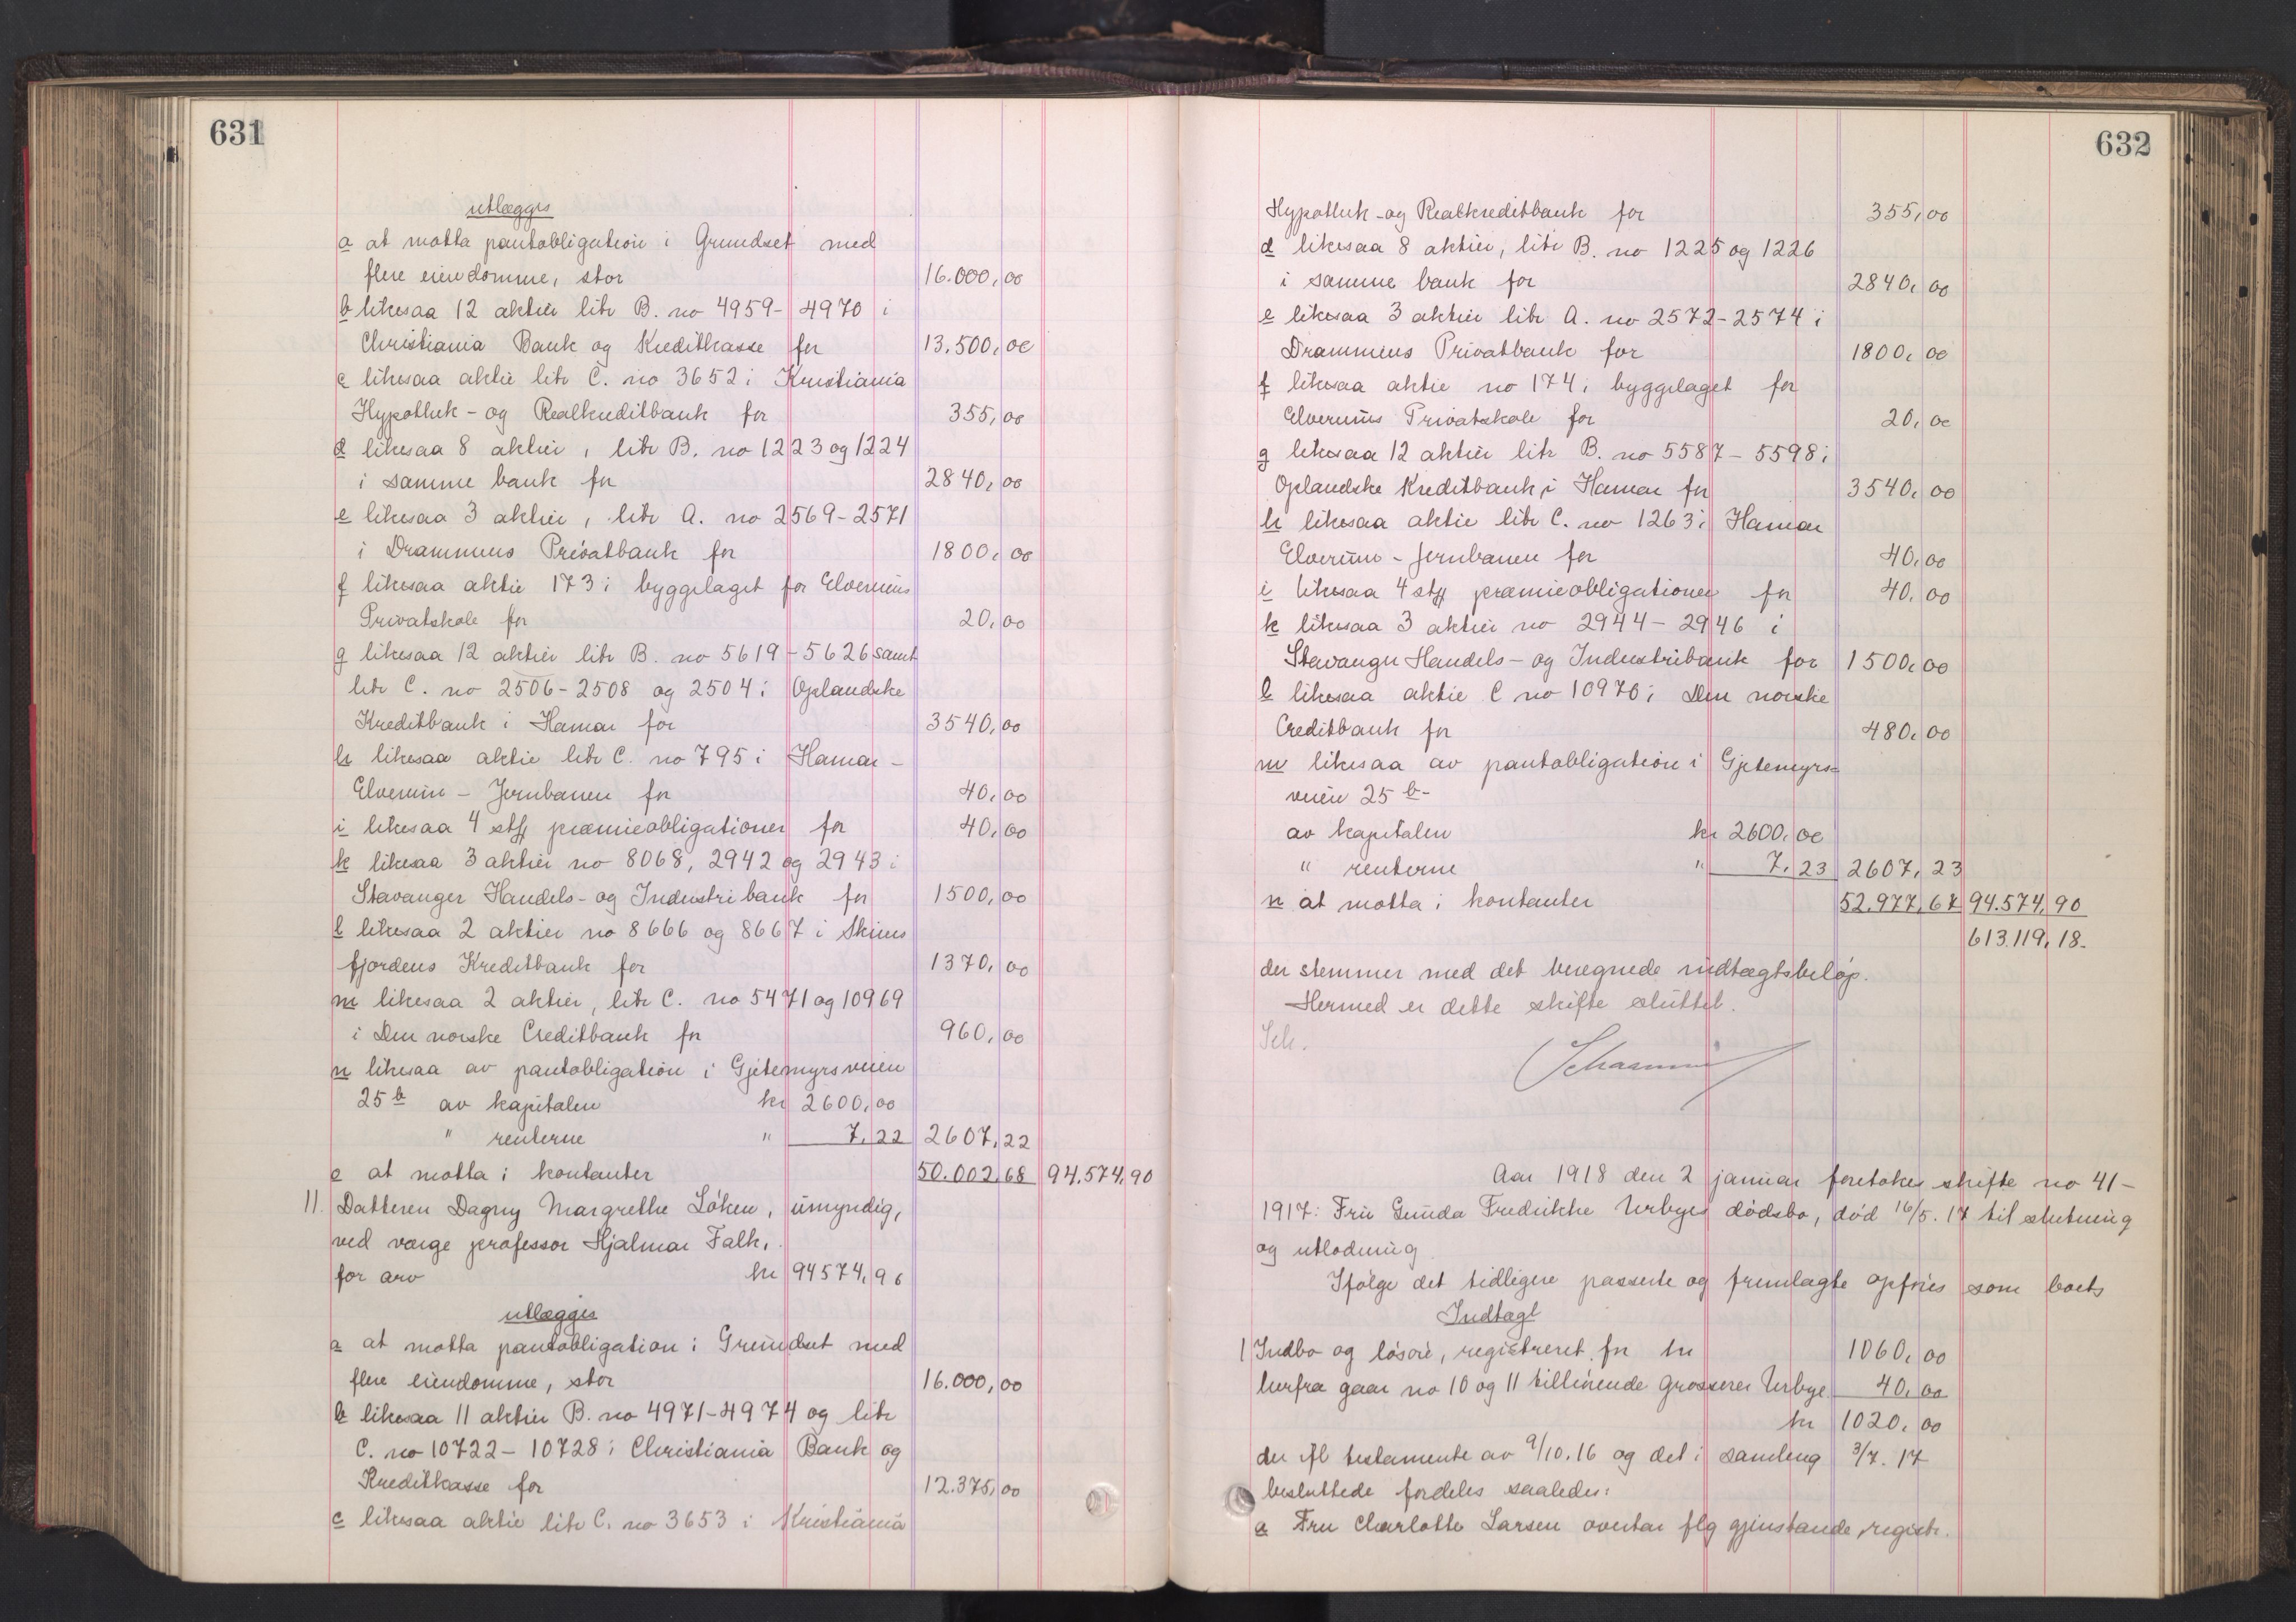 631
utlægges
a at motta pantobligation i Grundset med
flere eiendomme, stor 16.000,00
b likesaa 12 aktier litr B. no 4959-4970 i
Christiania Bank og Kreditkasse for 13.500,00
c likesaa aktie litr C. no 3652 i Kristiania
Hypothek- og Realkreditbank for 355,00
d likesaa 8 aktier, litr B. no 1223 og 1224
i samme bank for 2840,00
e likesaa 3 aktier, litr A. no 2569-2571
i Drammens Privatbank for 1800,00
f likesaa aktie 173 i byggelaget for Elverums
Privatskole for 20,00
g likesaa 12 aktier litr B. no 5619-5626 samt
litr C. no 2506-2508 og 2504 i Oplandske
Kreditbank i Hamar for 3540,00
h likesaa aktie litr C. no 795 i Hamar-
Elverum - Jernbanen for 40,00
i likesaa 4 stk præmieobligationer for 40,00
k likesaa 3 aktier no 8068, 2942 og 2943 i
Stavanger Handels- og Industribank for 1500,00
l likesaa 2 aktier no 8666 og 8667 i Skiens
fjordens Kreditbank for 1370,00
m likesaa 2 aktier, litr C. no 5471 og 10969
i Den norske Creditbank for 960,00
n likesaa av pantobligation i Gjetemyrsveien
25 b av kapitalen kr 2600,00
" renterne " 7,22 2607,22
o at motta i kontanter 50.002,68 94.574,90
11. Datteren Dagny Margrethe Löken, umyndig,
ved værge professor Hjalmar Falk,
for arv kr 94574,90
utlægges
a at motta pantobligation i Grundset med
flere eiendomme, stor 16.000,00
b likesaa 11 aktier B. no 4971-4974 og litr
C. no 10722-10728 i Christiania Bank og
Kreditkasse for 12.375,00
c likesaa aktie litr C. no 3653 i Kristiania
632
Hypothek-og Realkreditbank for 355,00
d likesaa 8 aktier, litr B. no 1225 og 1226
i samme bank for 2840,00
e likesaa 3 aktier litr A. no 2572-2574 i
Drammens Privatbank for 1800,00
f likesaa aktie no 174 i byggelaget for
Elverums Privatskole for 20,00
g likesaa 12 aktier litr B. no 5587-5598 i
Oplandske Kreditbank i Hamar for 3540,00
h likesaa aktie litr C. no 1263 i Hamar
Elverum - Jernbanen for 40,00
i likesaa 4 stk præmieobligationer for 40,00
k likesaa 3 aktier no 2944-2946 i
Stavanger Handels- og Industribank for 1500,00
l likesaa aktie C no 10970 i Den norske
Creditbank for 480,00
m likesaa av pantobligation i Gjetemyrs=
veien 25 b-
av kapitalen kr 2600,00
" renterne " 7,23 2607,23
n at motta i kontanter 52.977,67 94.574,90
613.119,18.
der stemmer med det beregnede indtægtsbeløp.
Hermed er dette skifte sluttet.
Sch.
Aar 1918 den 2 januar foretokes skifte no 41-
1917: Fru Gunda Fredrikke Urbyes dödsbo, död 16/5. 17 til slutning
og utlodning
Ifølge det tidligere passerte og fremlagte opföres som boets
Indtægt
1 Indbo og lösöre, registreret for kr 1060,00
herfra gaar no 10 og 11 tilhörende grosserer Urbye 40,00
kr 1020,00
der ifl testamente av 9/10.16 og det i samling 3/7. 17
besluttede fordeles saaledes:
a Fru Charlotte Larsen overtar flg gjenstande, registr.